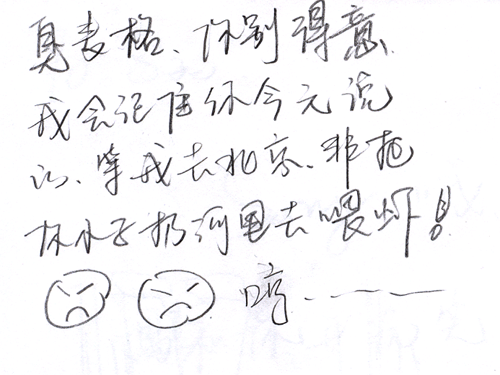 臭表格、你别得意
我会记住你今天说
的、等我去北京、非把
你小子扔河里去喂虾!
哼———